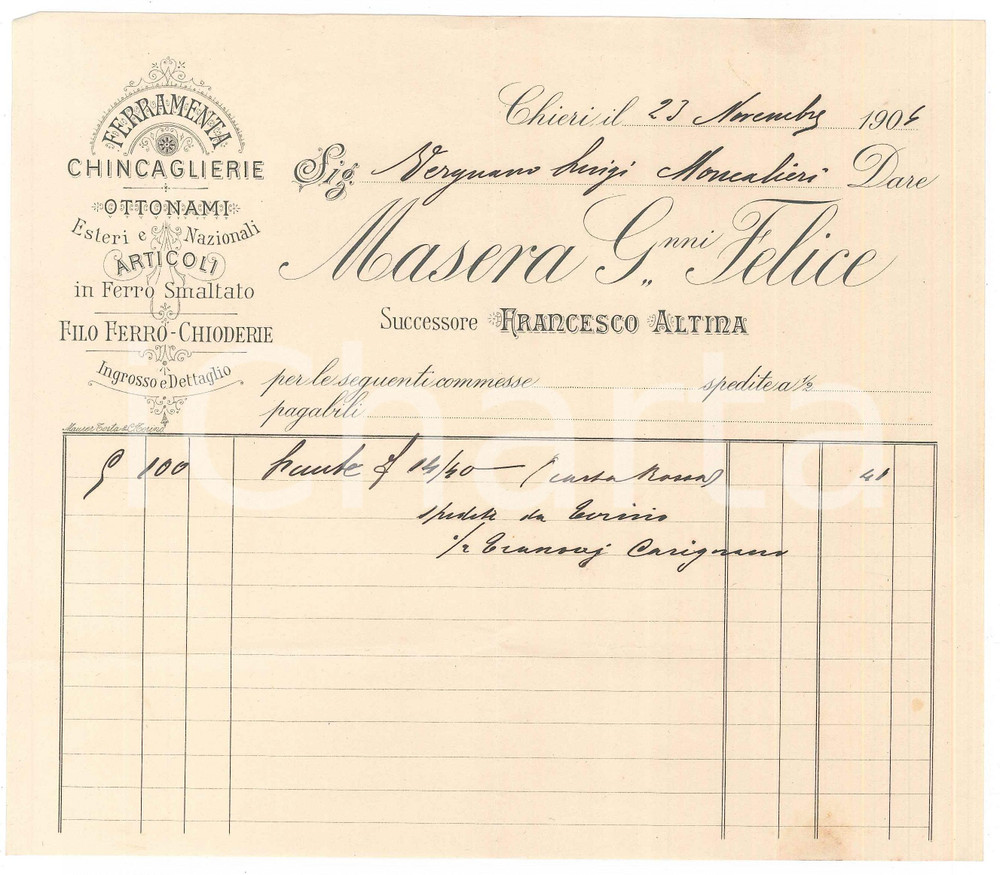 FERRAMENTA
CHINCAGLIERIE
OTTONAMI
Esteri e Nazionali
ARTICOLI
in Ferro Smaltato
FILO FERRO-CHIODERIE
Ingrosso e Dettaglio
Chieri, il 23 Novembre 1904
Sig. Vergnano Luigi Moncalieri Dare
Masera G.nni Felice
Successore FRANCESCO ALTINA
per le seguenti commesse spedite a ½
pagabili
100 14/40 (carta Rossa) 41
spedite da Torino
Carignano
iCharta